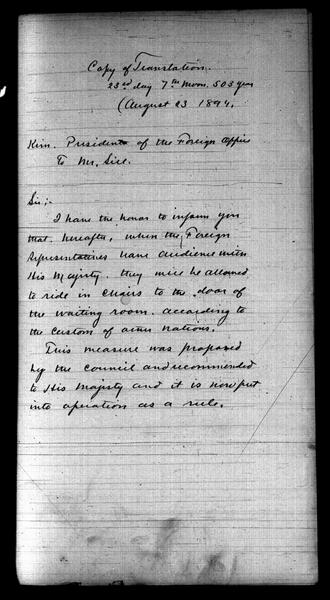 Copy of Translation.
23rd day 7th Moon. 503 year
(August 23 1894.
Kim. President of the Foreign Office
To Mr. Sill.
Sir;-
I have the honor to inform you
that. hereafter, when the Foreign
Representatives have audience with
His Majesty. they will be allowed
to ride in chairs to the door of
the waiting room. according to
the custom of other nations.
This measure was proposed
by the Council and recommended
to His Majesty and it is now put
into operation as a rule.